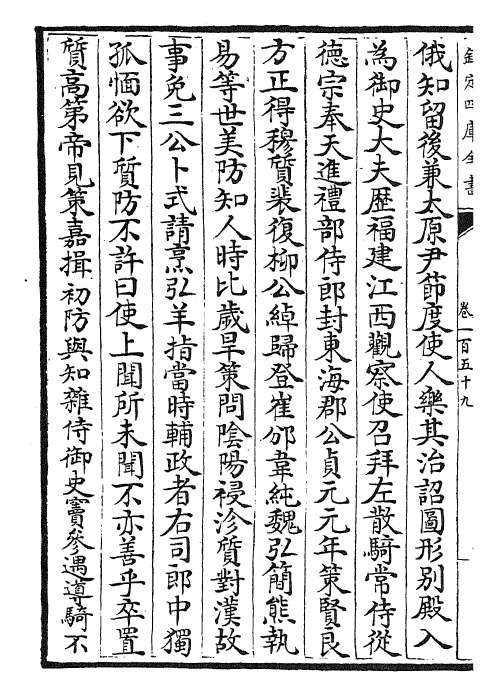 欽定四庫全書
卷一百五十九
俄知留後兼太原尹節度使人樂其治詔圖形別殿入
為御史大夫歷福建江西觀察使召拜左散騎常侍從
德宗奉天進禮部侍郎封東海郡公貞元元年策賢良
方正得穆質裴復柳公綽歸登崔邠韋純魏弘簡熊執
易等世美防知人時比歲旱策問陰陽祲沴質對漢故
事免三公卜式請烹弘羊指當時輔政者右司郎中獨
孤愐欲下質防不許曰使上聞所未聞不亦善乎卒置
質高第帝見策嘉揖初防與知雜侍御史竇參遇導騎不